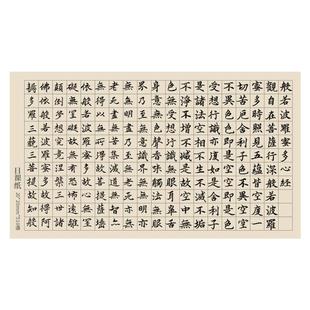 般若波羅蜜多心經
觀自在菩薩行深般若波羅
蜜多時照見五蘊皆空度一
切苦厄舍利子色不異空空
不異色色即是空空即是色
受想行識亦復如是舍利子
是諸法空相不生不滅不垢
不淨不增不減是故空中無
色無受想行識無眼耳鼻舌
身意無色聲香味觸法無眼
界乃至無意識界無無明亦
無無明盡乃至無老死亦無
老死盡無苦集滅道無智亦
無得以無所得故菩提薩埵
依般若波羅蜜多故心無罣
礙無罣礙故無有恐怖遠離
顛倒夢想究竟涅槃三世諸
佛依般若波羅蜜多故得阿
耨多羅三藐三菩提故知般
日課纸